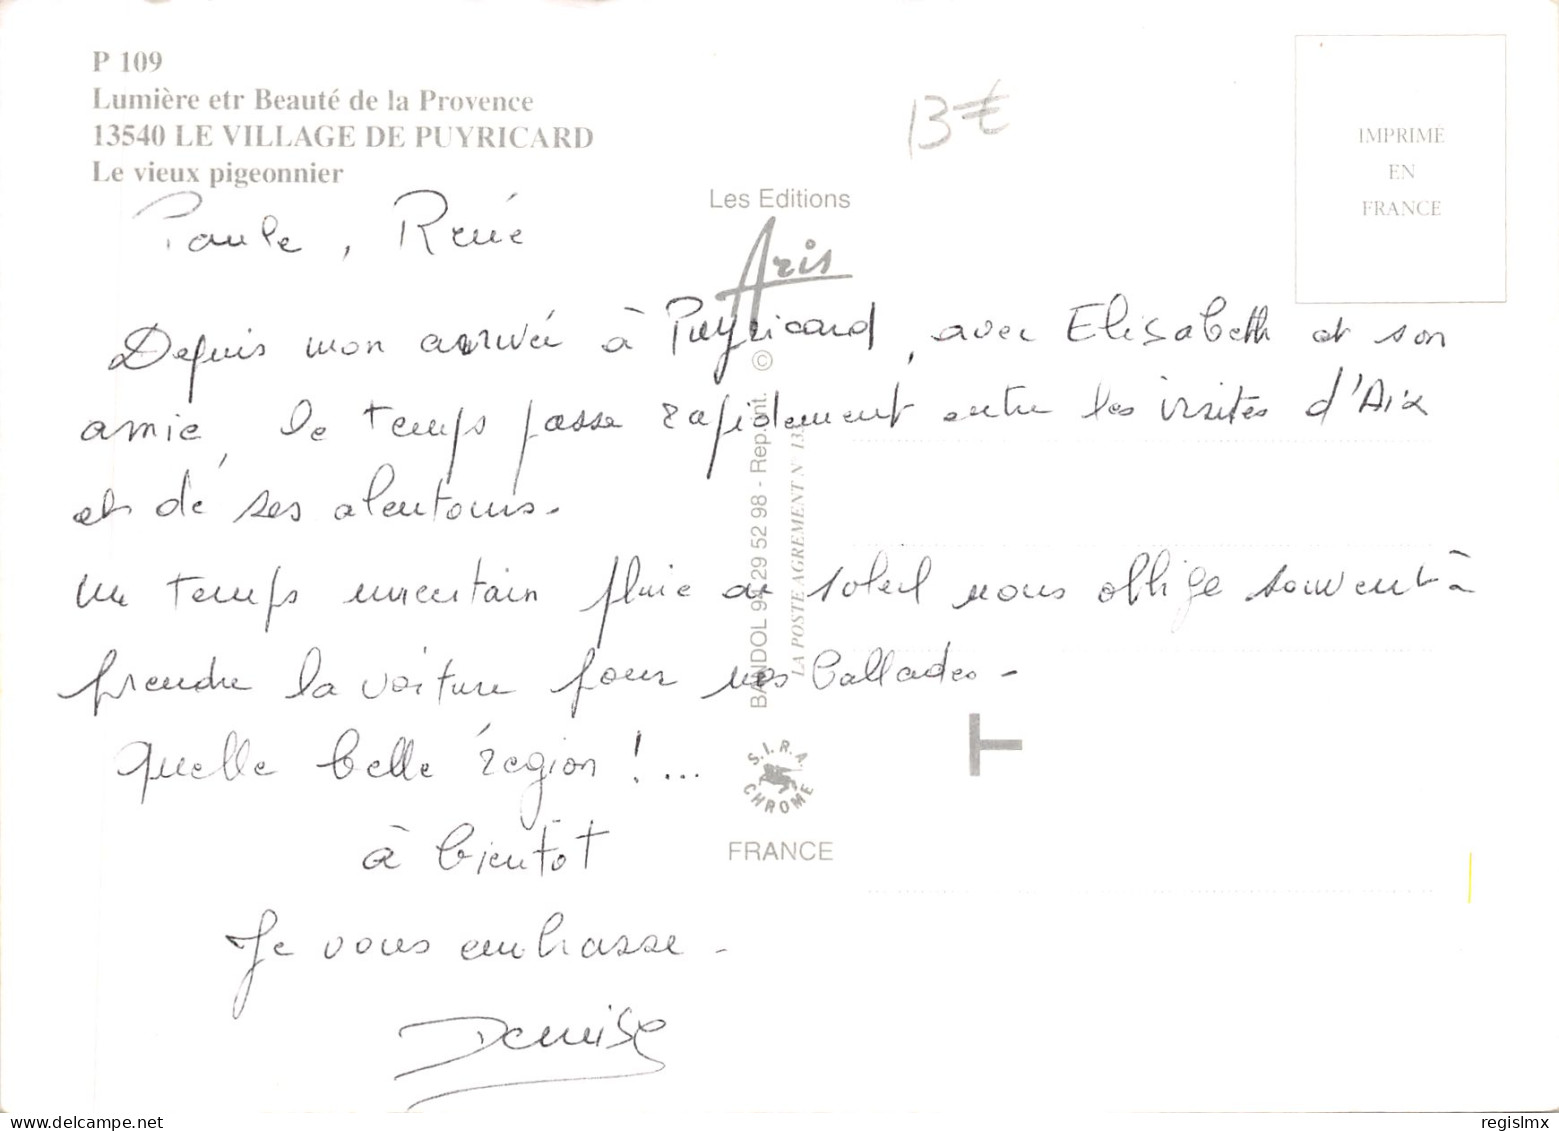 P 109
Lumière etr Beauté de la Provence
13540 LE VILLAGE DE PUYRICARD
Le vieux pigeonnier
13 €
IMPRIMÉ
EN
FRANCE
Les Editions
Aris
Paule, René
Depuis mon arrivée à Puyricard, avec Elisabeth et son
amie, le temps passe rapidement entre les visites d'Aix
et de ses alentours.
un temps incertain pluie ou soleil nous oblige souvent à
prendre la voiture pour nos ballades -
quelle belle région ! ...
à bientôt
Je vous embrasse -
Denise
BANDOL 94 29 52 98 - Rep. Int. ©
LA POSTE AGREMENT N° 13
S.I.R.A.
CHROME
FRANCE
T
delcampe.net
regislmx